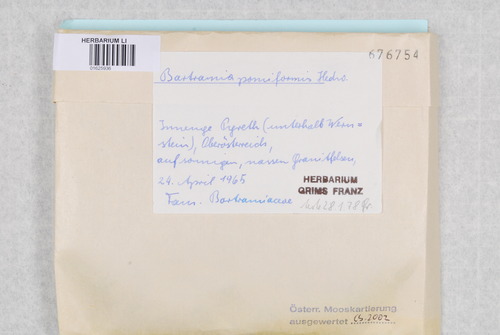 HERBARIUM LI
676754
Bartramia pomiformis Hedw.
Innenge Pyreth (unterhalb Wern=
stein), Oberösterreich,
auf sonnigen, nassen Granitfelsen,
24. April 1965
HERBARIUM
GRIMS FRANZ
Fam. Bartramiaceae
Österr. Mooskartierung
ausgewertet 05.2002